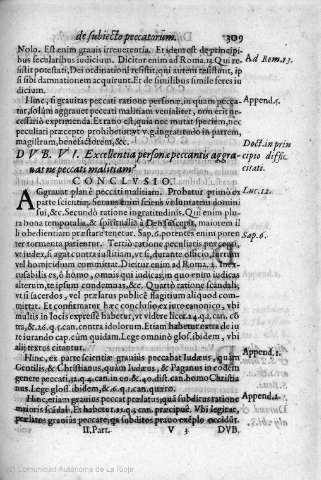 de subiecto peccatorum. 309
Nolo. Est enim grauis irreuerentia. Et idem est de principi
bus secularibus iudicium. Dicitur enim ad Roma. 13. Qui re
sistit potestati, Dei ordinationi resistit, qui autem resistunt, ip
si sibi damnationem acquirunt. Et de similibus simile feres iu
dicium.
Ad Rom. 13.
Hinc, si grauitas peccati ratione personæ, in quam pecca-
tur, solùm aggrauet peccati malitiam veniliter, non erit ne-
cessariò exprimenda. Et ratio est, quia nec mutat speciem, nec
peculiari præcepto prohibetur, vt v. g. ingratitudo in patrem,
magistrum, benefactorem, &c.
Append. 4.
DVB. VI. Excellentia personæ peccantis aggra-
uat ne peccati malitiam?
Doct. in prin
cipio diffic.
citati.
CONCLVSIO.
AGrauat planè peccati malitiam. Probatur primò ex
parte scientiæ, Seruus enim sciens voluntatem domini
sui, &c. Secundò ratione ingratitudinis. Qui enim plu
ra bona temporalia, & spiritualia à Deo suscepit, maiorem il
li obedientiam præstare tenetur. Sap. 6. potentes enim poten
ter tormenta patientur. Tertiò ratione peculiaris
vt iudex, si agat contra iustitiam, vt si, durante officio,
vel homicidium committat. Dicitur enim ad Roma. 2. Inex-
cusabilis es, ô homo, omnis qui iudicas, in quo enim iudicas
alterum, te ipsum condemnas, &c. Quartò ratione scandali,
vt si sacerdos, vel prælatus publicè flagitium aliquod com-
mittat. Et confirmatur hæc conclusio ex iure canonico, vbi
multis in locis expressè habetur, vt videre licet. 24. q. 1. can.
Etiam habetur extra de iu
re iurando cap. cùm quidam. Lege omninò glos. ibidem, vbi
alij textus citantur.
Luc. 12.
Sap. 6.
Hinc, ex parte scientiæ grauiùs peccabat Iudæus, quàm
Gentilis, & Christianus, quàm Iudæus, & Paganus in eodem
genere peccati,
nus. Lege glos. ibidem,
Append. 1.
Hinc, etiam grauiùs peccat prælatus, quà subditus ratione
maioris scādali. Et habetur. præcipuè. Vbi legitur,
prælatos grauiùs peccare, quia subditos prauo exéplo occidūt.
Append. 2.
II. Part. V 3 DVB.
Comunidad Autónoma de La Rioja